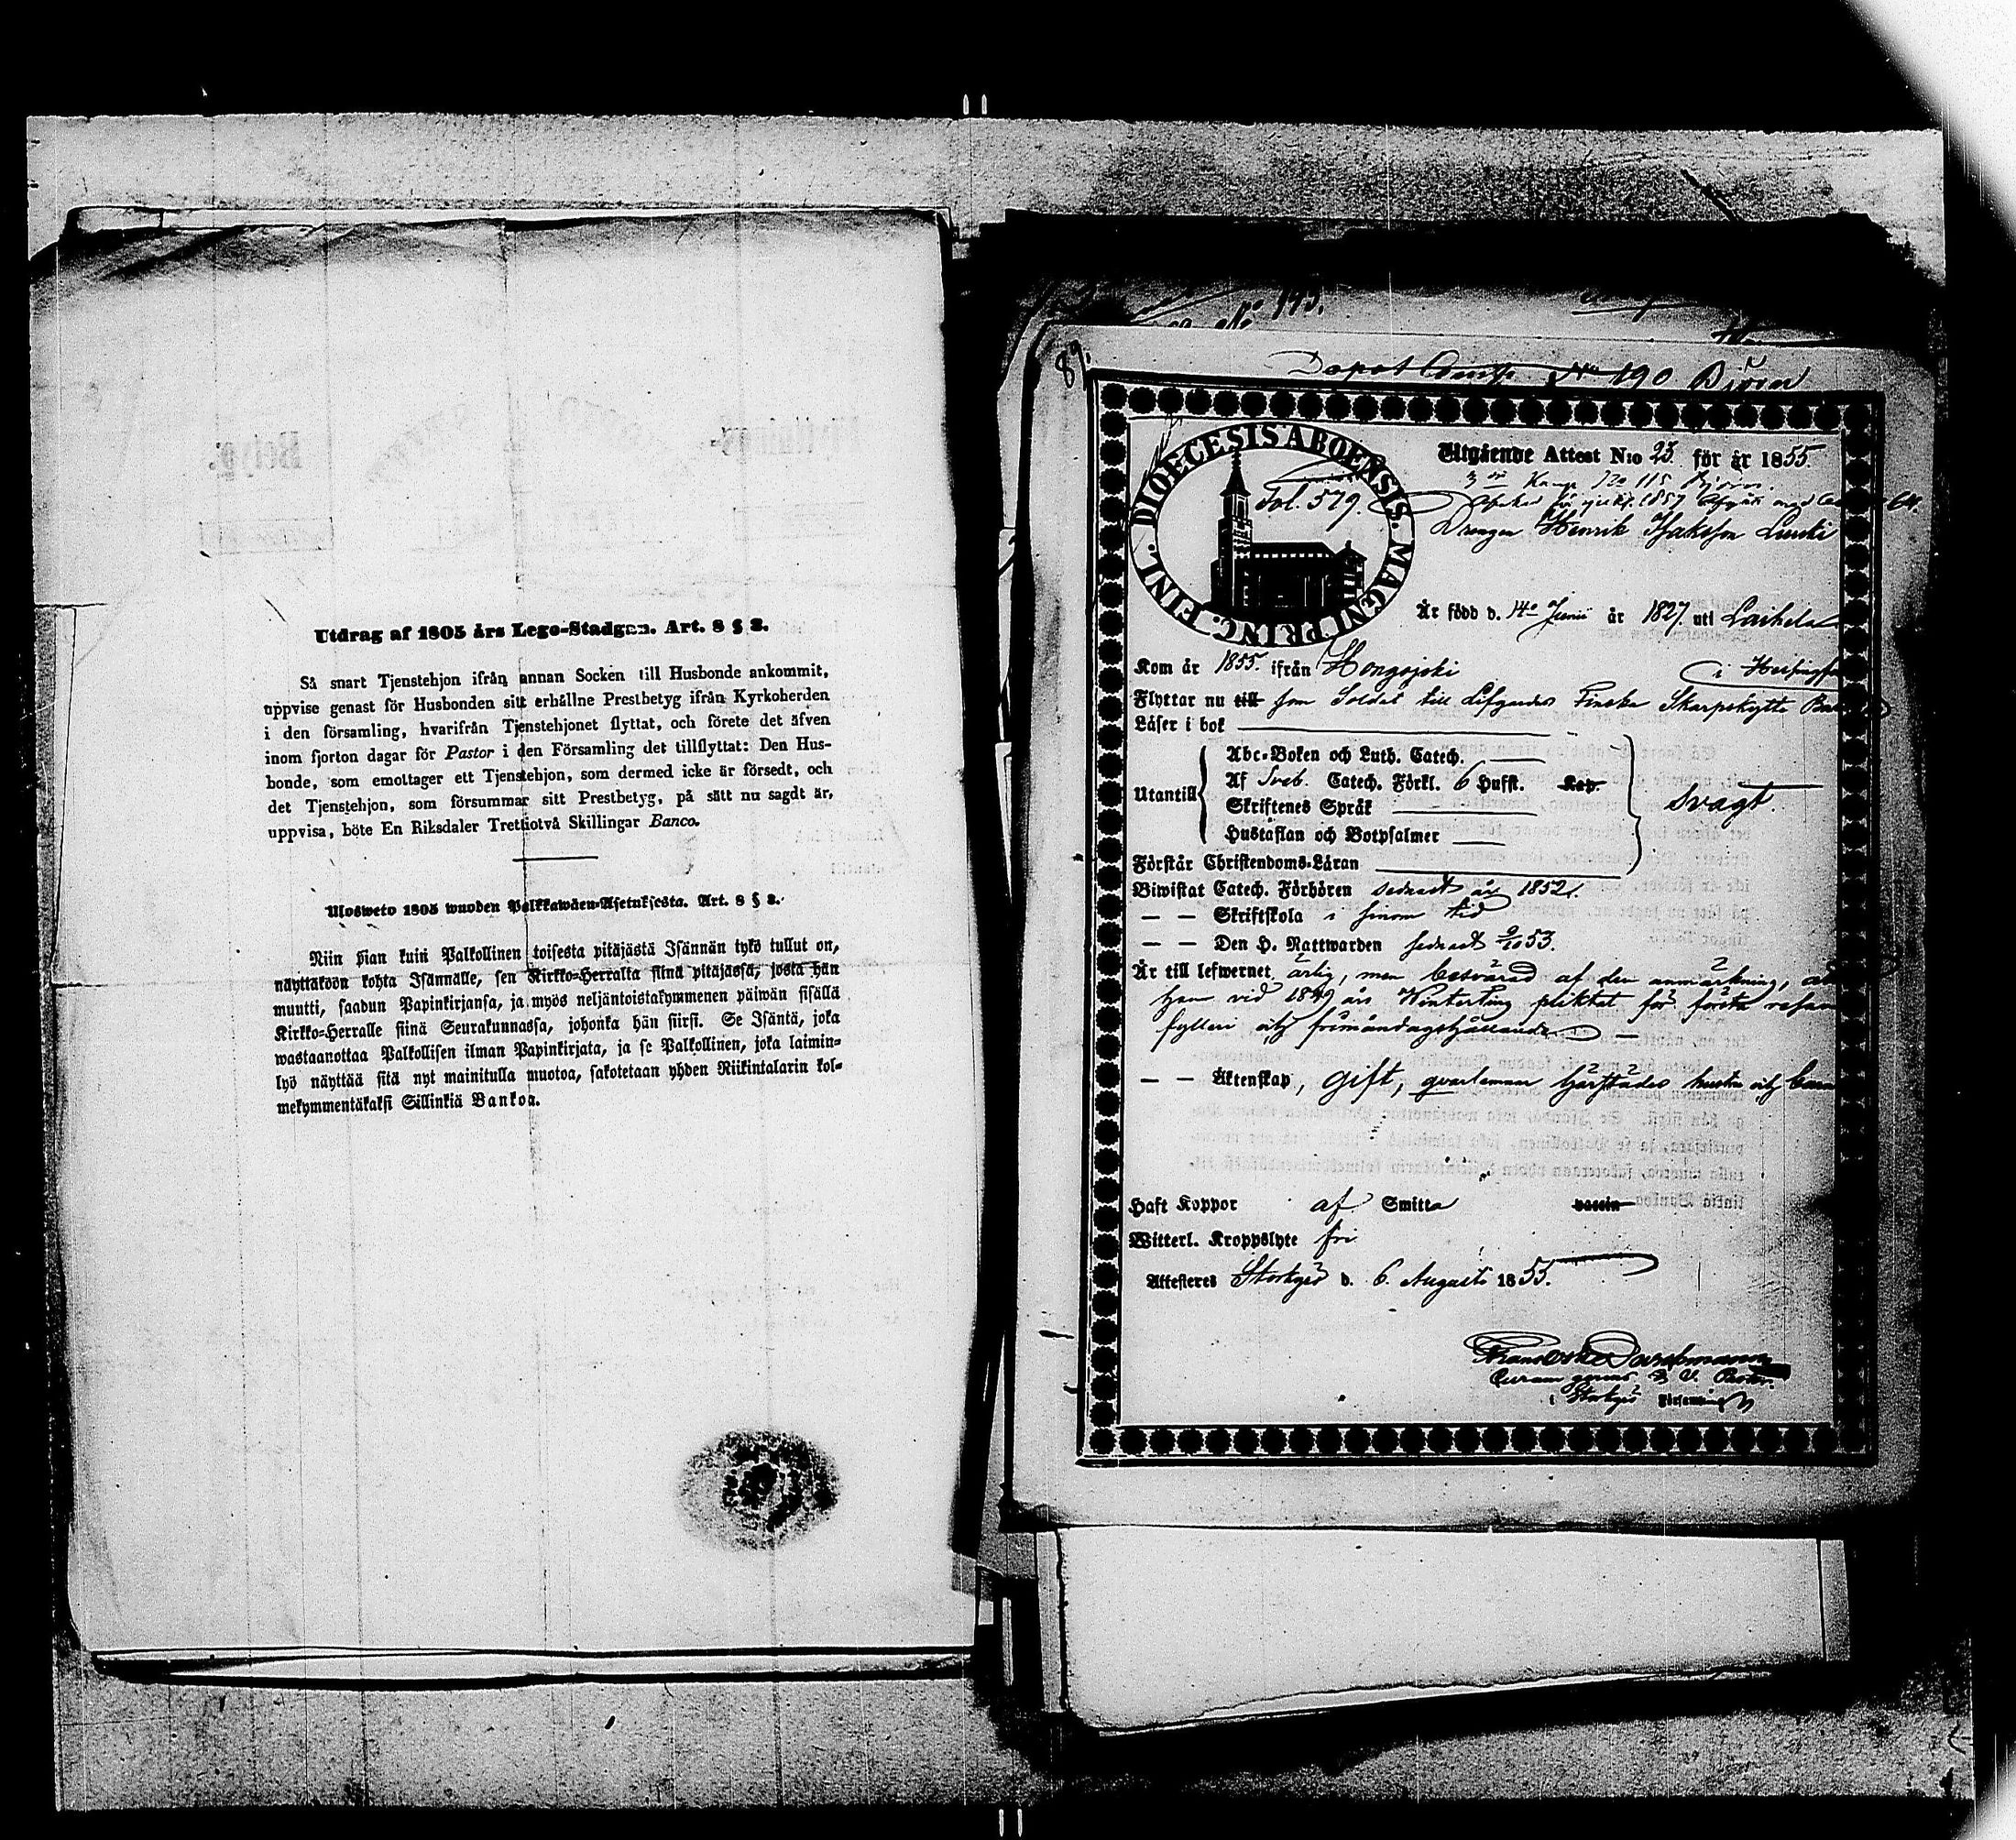 Utdrag af 1805 års Lego-Stadgan. Art. 8 § 2.
Så snart Tjenstehjon ifrån annan Socken till Husbonde ankommit,
uppvise genast för Husbonden sitt erhållne Prestbetyg ifrån Kyrkoherden
i den församling, hvarifrån Tjenstehjonet flyttat, och förete det äfven
inom fjorton dagar för Pastor i den Församling det tillflyttat: Den Hus-
bonde, som emottager ett Tjenstehjon, som dermed icke är försedt, och
det Tjenstehjon, som försummar sitt Prestbetyg, på sätt nu sagdt är,
uppvisa, böte En Riksdaler Trettiotvå Skillingar Banco.
Ulosweto 1805 wuoden Palkkawäen-Asetuksesta. Art. 8 § 2.
Niin pian kuin Palkollinen toisesta pitäjästä Isännän tykö tullut on,
näyttäköön kohta Isännälle, sen Kirkko-Herralta siinä pitäjässä, josta hän
muutti, saadun Papinkirjansa, ja myös neljäntoistakymmenen päiwän sisällä
Kirkko-Herralle siinä Seurakunnassa, johonka hän siirsi. Se Isäntä, joka
wastaanottaa Palkollisen ilman Papinkirjata, ja se Palkollinen, joka laimin-
lyö näyttää sitä nyt mainitulla muotoa, sakotetaan yhden Riikintalarin kol-
mekymmentäkaksi Sillinkiä Bankoa.
No 143.
89.
Depot Comp. No 190 Björn
DIOECESIS ABOENSIS. MAGNI PRINC. FINL.
Fol. 579.
Utgående Attest N:o 23. för år 1855.
3 Komp No 115 Björn.
1857
Drengen Henrik Isaksson Luuki
Är född d. 14 Junii år 1827. uti Laihela
Kom år 1855. ifrån Hongojoki
i Helsingfors
Flyttar nu till som Soldat till Lifgardes Finska Skarpskytte
Läser i bok
Utantill
Abc-Boken och Luth. Catech.
Af Sveb. Catech. Förkl. 6 Hufst. Kap.
Skriftenes Språk
Hustaflan och Botpsalmer
svagt.
Förstår Christendoms-Läran
Biwistat Catech. Förhören sednast år 1852.
— — Skriftskola i sinom tid
— — Den H. Nattwarden sednast 9/10 53.
Är till lefwernet ärlig, men besvärad af den anmärkning, att
han vid 1849 års Winterting pliktat för första resan
fylleri och
— — Äktenskap, gift, qvarlemnar hustru och barn
Haft Koppor af Smitta vaccin
Witterl. Kroppslyte fri
Attesteras Storkyro d. 6. Augusti 1855.
Frans Oskar Durchman
Curam gerens & V. Pastor.
i Storkyro Församling